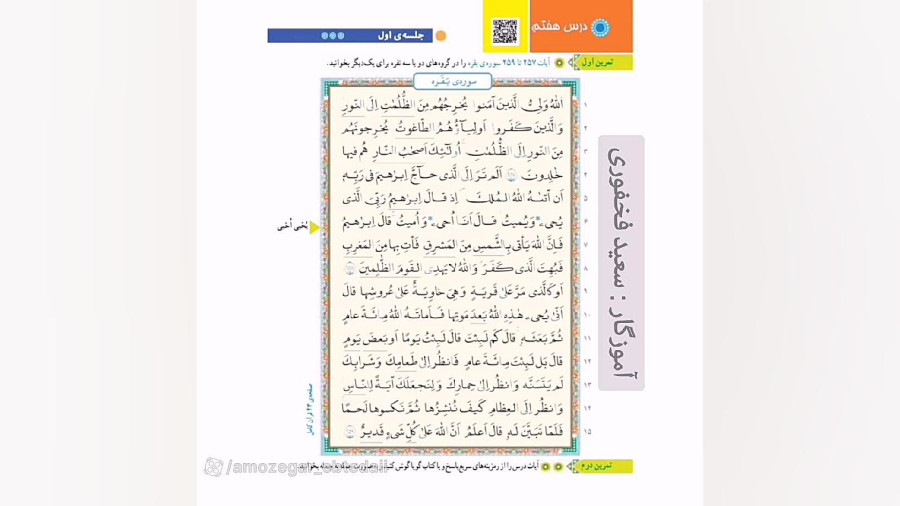 درس هفتم
جلسه‌ی اول
تمرین اول
آیات ۲۵۷ تا ۲۵۹ سوره‌ی بقره را در گروه‌های دو یا سه نفره برای یک‌دیگر بخوانید.
سوره‌ی بَقَره
۱ اَللّٰهُ وَلِیُّ الَّذینَ آمَنوا یُخرِجُهُم مِنَ الظُّلُمٰتِ اِلَی النّورِ
۲ وَالَّذینَ کَفَروا اَولِیاۤؤُهُمُ الطّاغوتُ یُخرِجونَهُم
۳ مِنَ النّورِ اِلَی الظُّلُمٰتِ اُولٰئِکَ اَصحٰبُ النّارِ هُم فیها
۴ خٰلِدونَ ۲۵۷ اَلَم تَرَ اِلَی الَّذی حاۤجَّ اِبرٰهیمَ فی رَبِّهٖ
۵ اَن آتٰىهُ اللّٰهُ المُلکَ اِذ قالَ اِبرٰهیمُ رَبِّیَ الَّذی
۶ یُحیۦ وَیُمیتُ قالَ اَنَا اُحیۦ وَ اُمیتُ قالَ اِبرٰهیمُ
یُحیی اُحیی
۷ فَاِنَّ اللّٰهَ یَأتی بِالشَّمسِ مِنَ المَشرِقِ فَأتِ بِها مِنَ المَغرِبِ
۸ فَبُهِتَ الَّذی کَفَرَ وَاللّٰهُ لا یَهدِی القَومَ الظّٰلِمینَ ۲۵۸
۹ اَو کَالَّذی مَرَّ عَلیٰ قَریَةٍ وَهِیَ خاوِیَةٌ عَلیٰ عُروشِها قالَ
۱۰ اَنّیٰ یُحیۦ هٰذِهِ اللّٰهُ بَعدَ مَوتِها فَاَماتَهُ اللّٰهُ مِائَةَ عامٍ
۱۱ ثُمَّ بَعَثَهٗ قالَ کَم لَبِثتَ قالَ لَبِثتُ یَومًا اَو بَعضَ یَومٍ
۱۲ قالَ بَل لَبِثتَ مِائَةَ عامٍ فَانظُر اِلیٰ طَعامِکَ وَ شَرابِکَ
۱۳ لَم یَتَسَنَّه وَ انظُر اِلیٰ حِمارِکَ وَ لِنَجعَلَکَ آیَةً لِلنّاسِ
۱۴ وَ انظُر اِلَی العِظامِ کَیفَ نُنشِزُها ثُمَّ نَکسوها لَحمًا
۱۵ فَلَمّا تَبَیَّنَ لَهٗ قالَ اَعلَمُ اَنَّ اللّٰهَ عَلیٰ کُلِّ شَیءٍ قَدیرٌ ۲۵۹
صفحه‌ی ۴۳ قرآن کامل
آموزگار : سعید فخفوری
تمرین دوم
آیات درس را از رمزینه‌های سریع پاسخ و یا کتاب گویا گوش کنید
/amozegar_ebtedaii